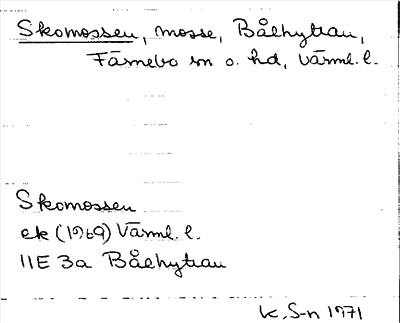 Skomossen, mosse, Bålhyttan,
Färnebo sn o. hd, Värml. l.
Skomossen
ek (1969) Värml. l.
11E 3a Bålhyttan
K. S-n 1971